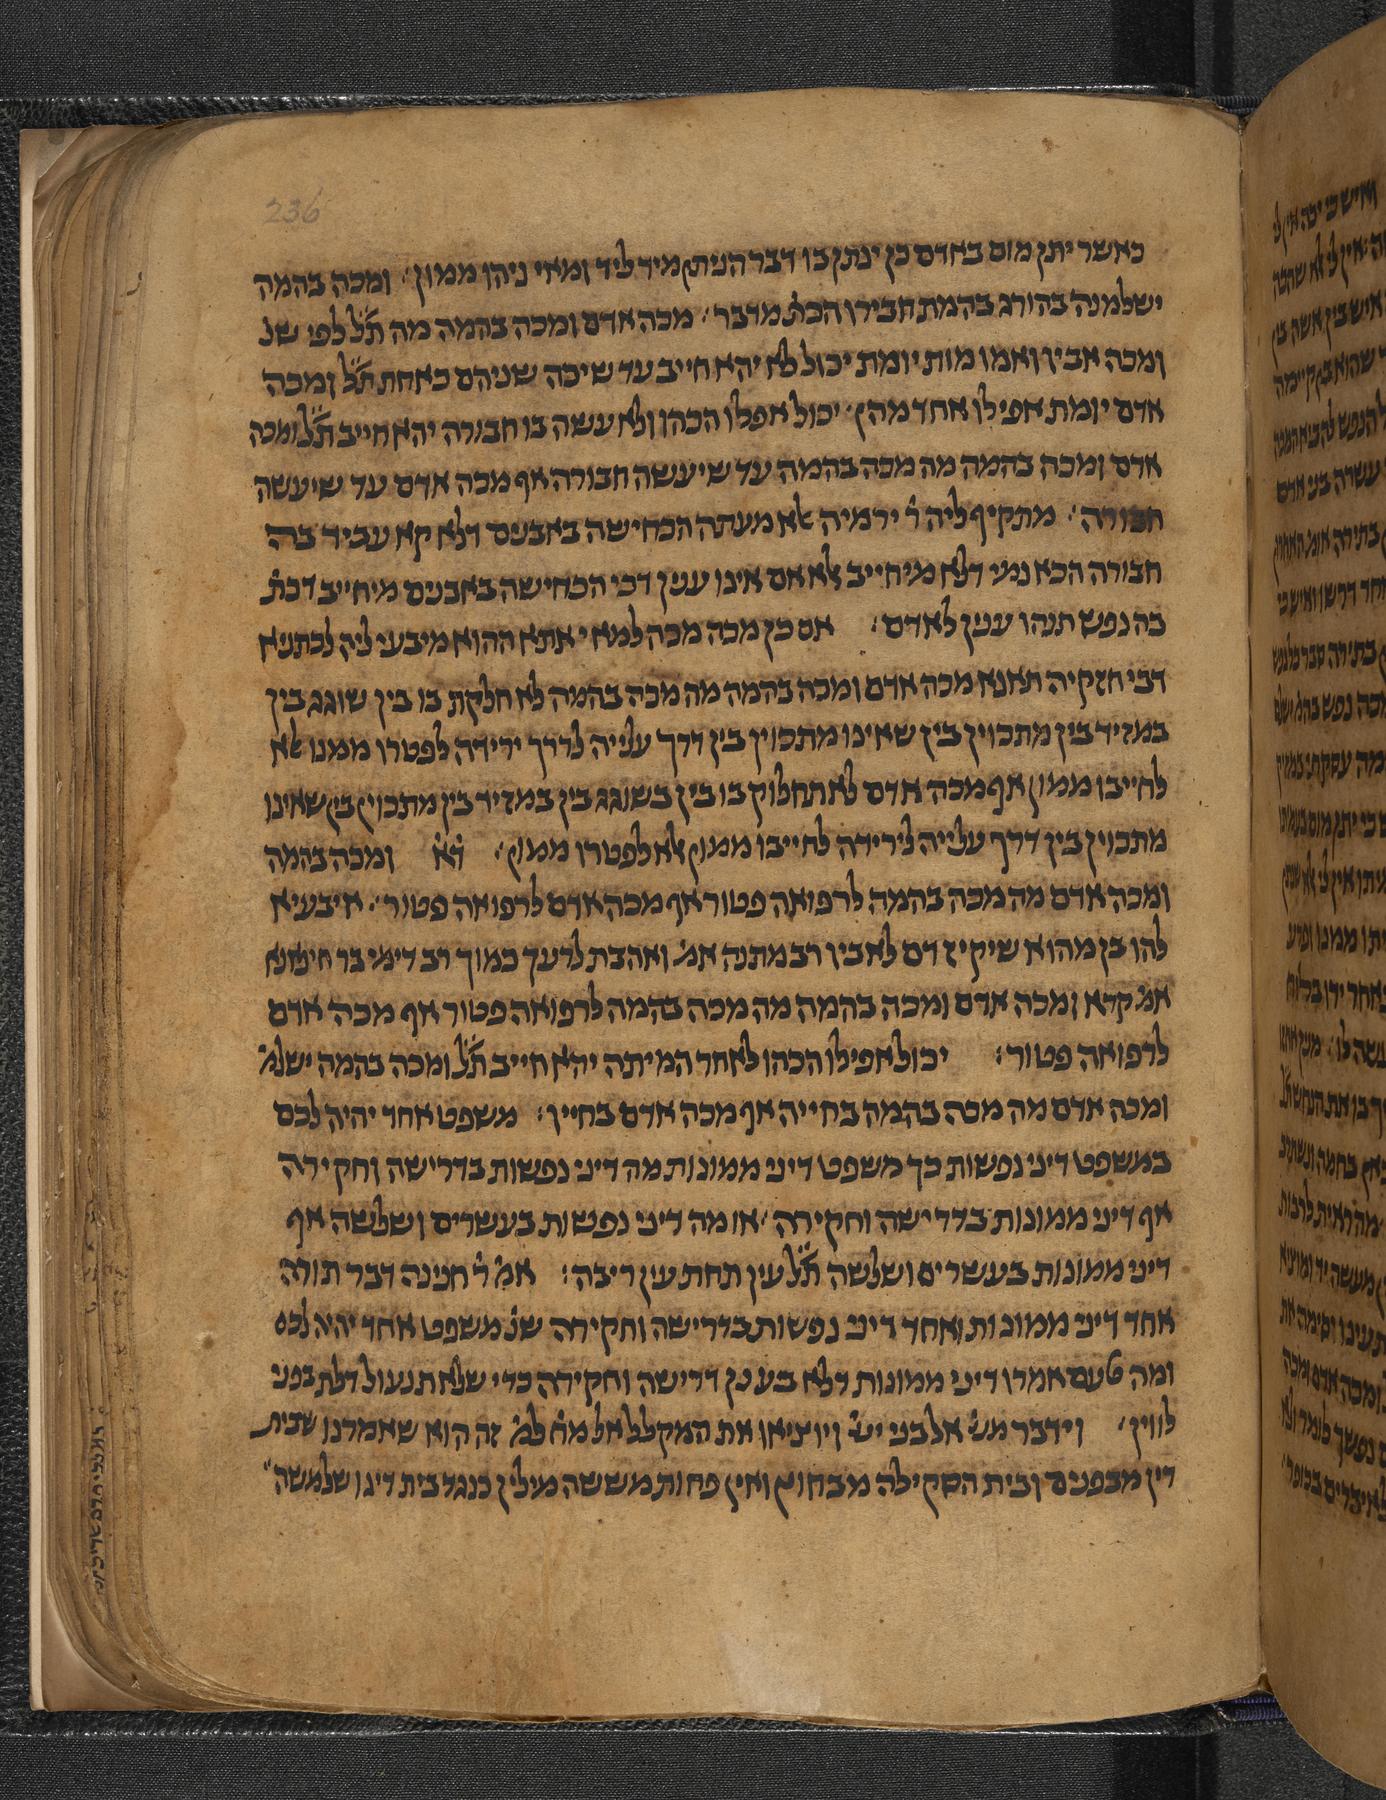 236
כאשר יתן מום באדם כן ינתן בו דבר הניתן מיד ליד ומאי ניהו ממון׃ ומכה בהמה
ישלמנה בהורג בהמת חבירו הכת׳ מדבר׃ מכה אדם ומכה בהמה מה ת״ל לפי שנ׳
ומכה אביו ואמו מות יומת יכול לא יהא חייב עד שיכה שניהם כאחת ת״ל ומכה
אדם יומת אפילו אחד מהן׃ יכול אפלו הכהו ולא עשה בו חבורה יהא חייב ת״ל ומכה
אדם ומכה בהמה מה מכה בהמה עד שיעשה חבורה אף מכה אדם עד שיעשה
חבורה׃ מתקיף ליה ר׳ ירמיה אלא מעתה הכחישה באבנים דלא קא עביד בה
חבורה הכא נמי דלא מיחייב אלא אם אינו ענין דכי הכחישה באבנים מיחייב דכת׳
בה נפש תנהו ענין לאדם׃ אם כן מכה מכה למאי אתא ההוא מיבעי ליה לכתניא
דבי חזקיה תאנא מכה אדם ומכה בהמה מה מכה בהמה לא חלקת בו בין שוגג בין
במזיד בין מתכוין בין שאינו מתכוין בין דרך עלייה לדרך ירידה לפטרו ממנו אלא
לחייבו ממון אף מכה אדם לא תחלוק בו בין בשוגג בין במזיד בין מתכוין בין שאינו
מתכוין בין דרך עלייה לירידה לחייבו ממון אלא לפטרו ממון׃ ד״א ומכה בהמה
ומכה אדם מה מכה בהמה לרפואה פטור אף מכה אדם לרפואה פטור׃ איבעיא
להו בן מהוא שיקיז דם לאביו רב מתנה אמ׳ ואהבת לרעך כמוך רב דימי בר חיננא
אמ׳ קרא ומכה אדם ומכה בהמה מה מכה בהמה לרפואה פטור אף מכה אדם
לרפואה פטור׃ יכול אפילו הכהו לאחר המיתה יהא חייב ת״ל ומכה בהמה ישלמ׳
ומכה אדם מה מכה בהמה בחייה אף מכה אדם בחייו׃ משפט אחד יהיה לכם
במשפט דיני נפשות כך משפט דיני ממונות מה דיני נפשות בדרישה וחקירה
אף דיני ממונות בדרישה וחקירה׃ או מה דיני נפשות בעשרים ושלשה אף
דיני ממונות בעשרים ושלשה ת״ל עין תחת עין ריבה׃ אמ׳ ר׳ חנינה דבר תורה
אחד דיני ממונות ואחד דיני נפשות בדרישה וחקירה שנ׳ משפט אחד יהיה לכם
ומה טעם אמרו דיני ממונות דלא בענין דרישה וחקירה כדי שלא תנעול דלת בפני
לווין׃ וידבר מש׳ אל בני יש׳ ויוציאו את המקלל אל מח׳ למ׳ זה הוא שאמרנו שבית
דין מבפנים ובית הסקילה מבחוץ ואין פחות מששה מילין כנגד בית דינו שלמשה